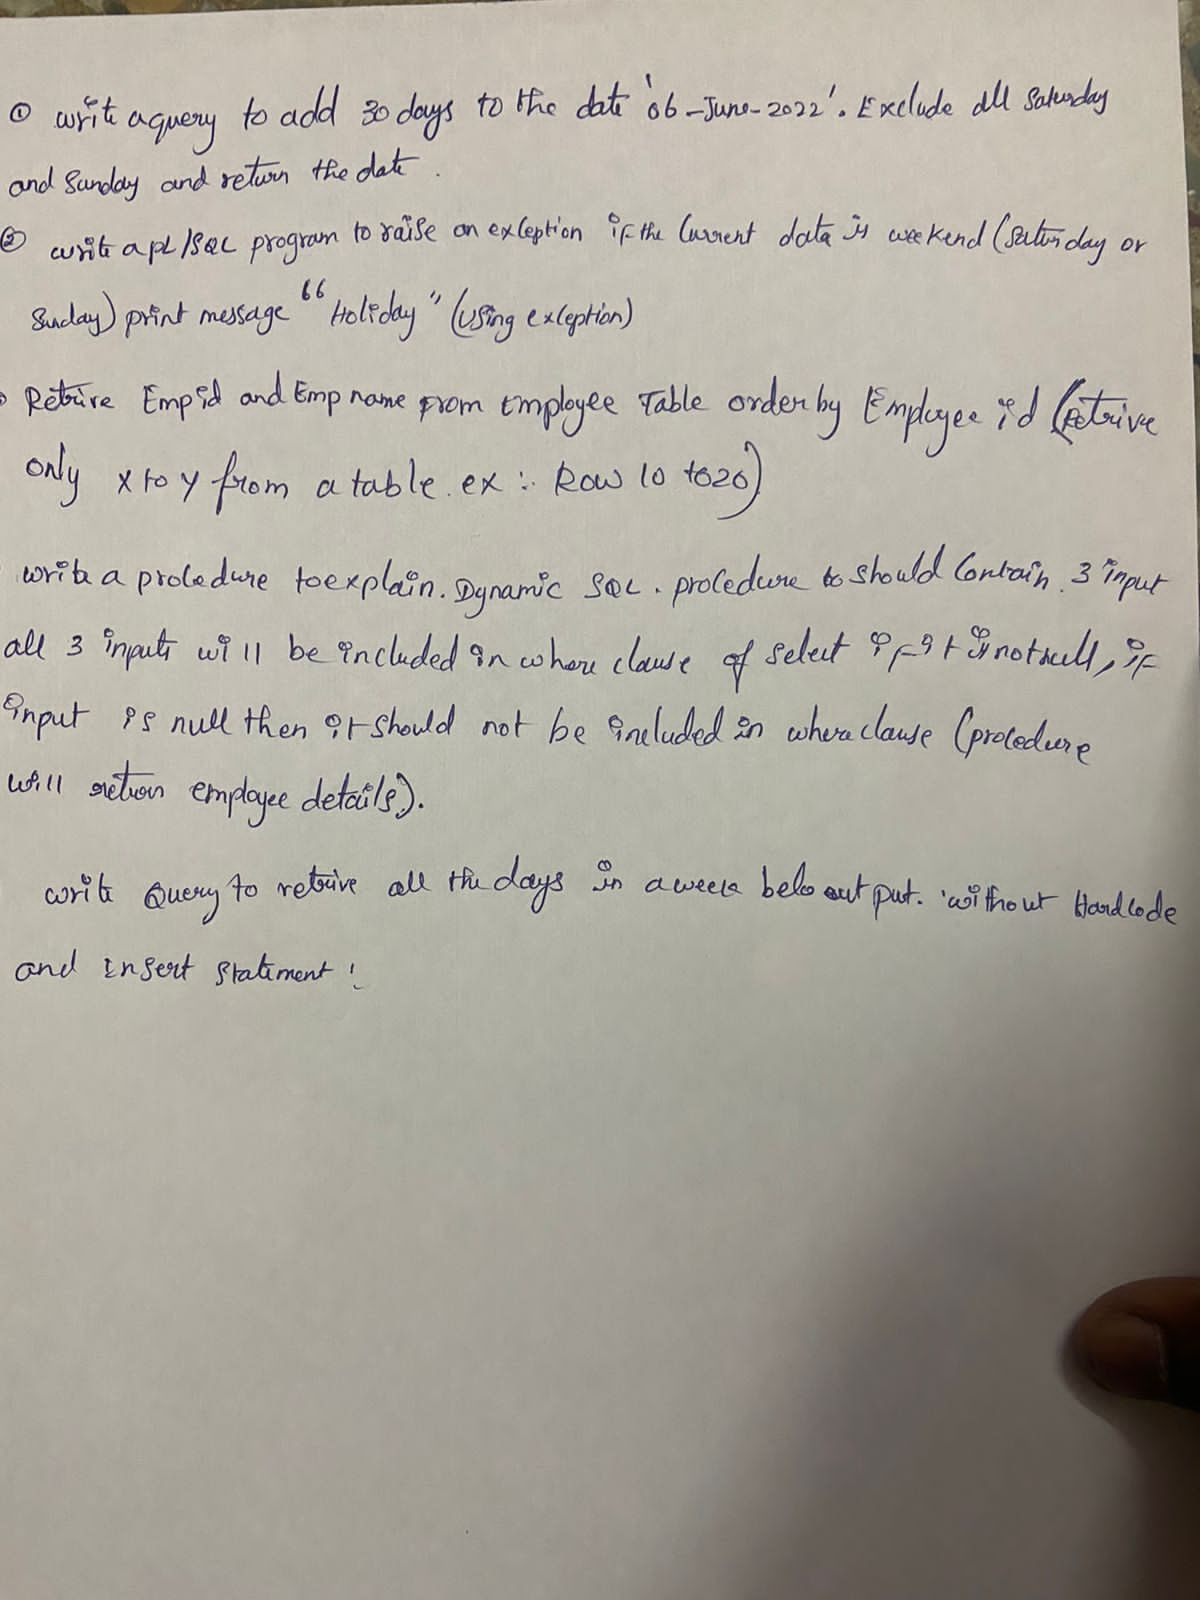 ① write a query to add 30 days to the date '06-June-2022'. Exclude all Saturday
and Sunday and return the date.
② write a pL/SQL program to raise an exception if the Current data is weekend (Saturday or
Sunday) print message "Holiday" (using exception)
Retrive Empid and Emp name from Employee Table order by Employee id (Retrive
only x to y from a table. ex:- Row 10 to 20)
write a procedure to explain. Dynamic SQL. procedure to should Contain. 3 input
all 3 inputs will be included in where clause of select if it is not null, if
input is null then it should not be included in where clause (procedure
will return employee details).
write Query to retrive all the days in a week belo out put. without Hardcode
and insert statment!